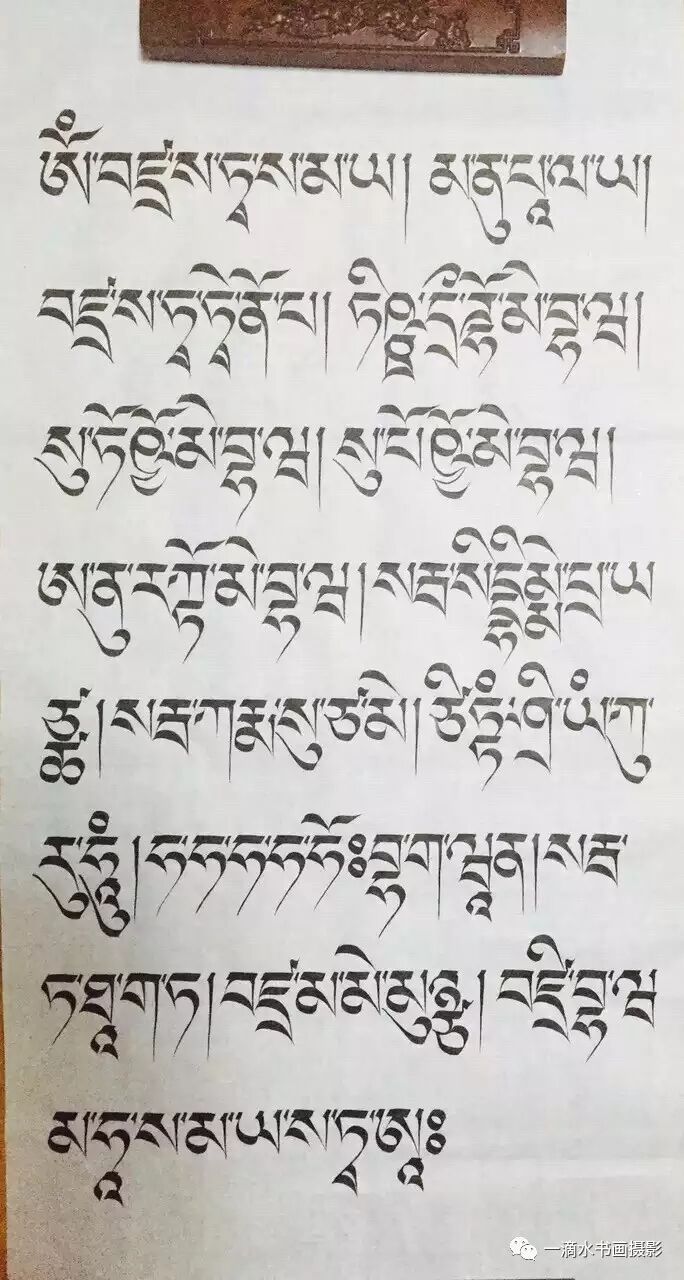 ཨོཾ་བཛྲ་ས་ཏྭ་ས་མ་ཡ། མ་ནུ་པཱ་ལ་ཡ།
བཛྲ་ས་ཏྭ་ཏྭེ་ནོ་པ། ཏིཥྛ་དྲྀ་ཌྷོ་མེ་བྷ་ཝ།
སུ་ཏོ་ཥྱོ་མེ་བྷ་ཝ། སུ་པོ་ཥྱོ་མེ་བྷ་ཝ།
ཨ་ནུ་ར་ཀྟོ་མེ་བྷ་ཝ། སརྦ་སིདྡྷིམྨེ་པྲ་ཡ
ཙྪ། སརྦ་ཀརྨ་སུ་ཙ་མེ། ཙིཏྟཾ་ཤྲི་ཡཾ་ཀུ
རུ་ཧཱུྃ། ཧ་ཧ་ཧ་ཧ་ཧོཿབྷ་ག་ཝཱན། སརྦ་
ཏ་ཐཱ་ག་ཏ། བཛྲ་མ་མེ་མུཉྩ། བཛྲི་བྷ་ཝ
མ་ཧཱ་ས་མ་ཡ་ས་ཏྭ་ཨཱཿ
一滴水书画摄影